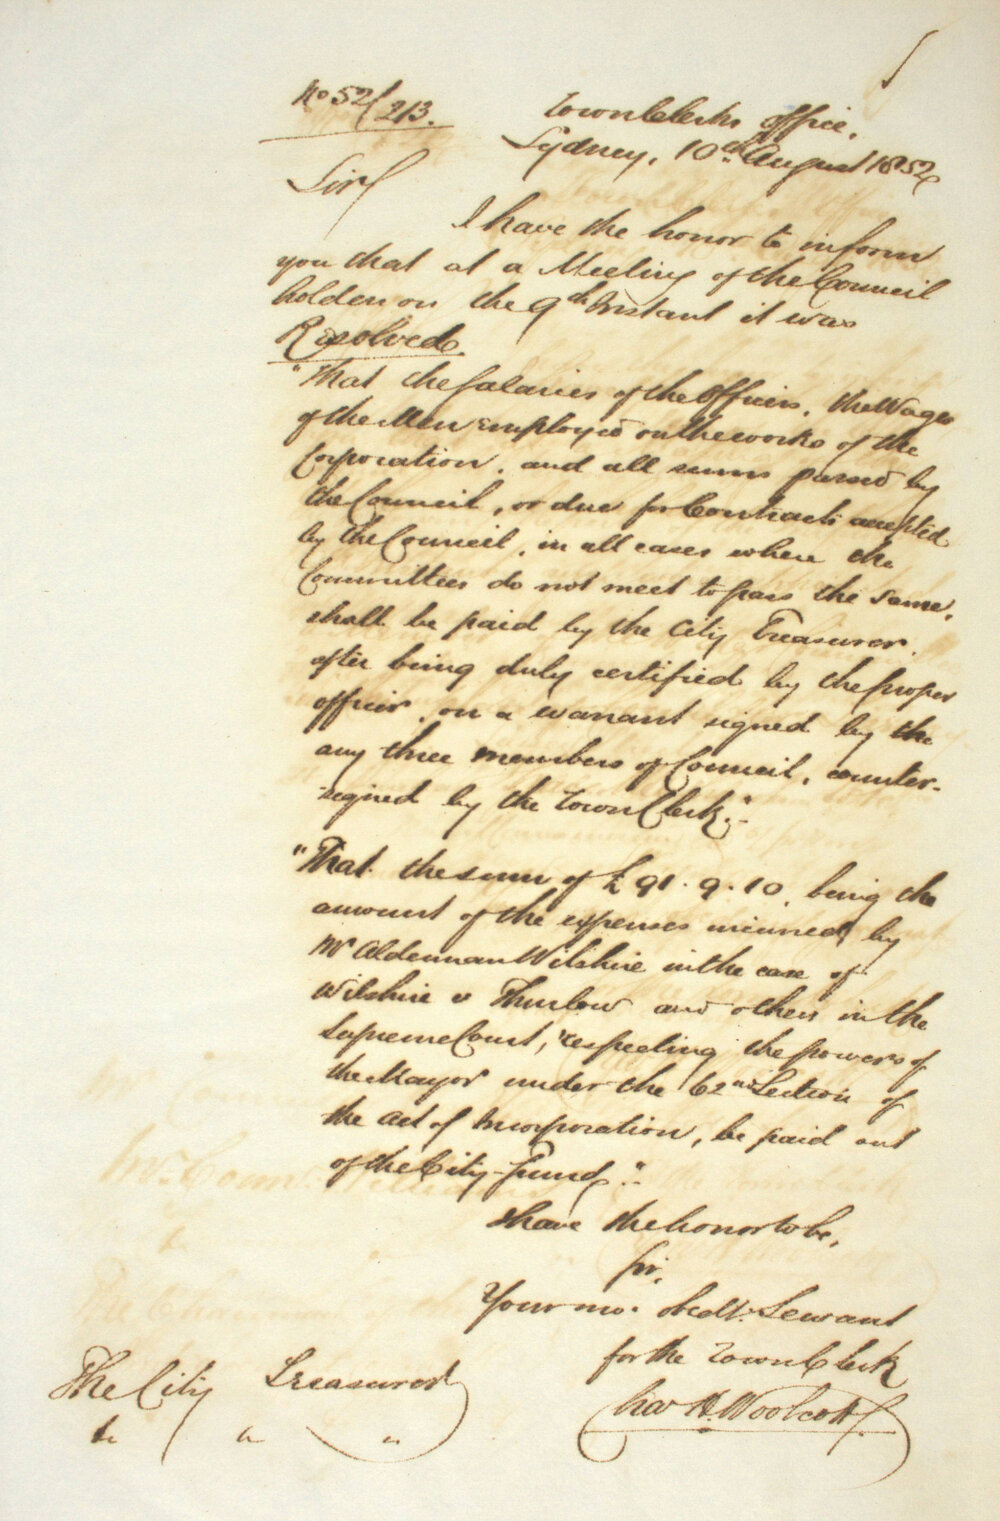 No 52/213.
Town Clerks Office,
Sydney, 10th August 1852
Sir
I have the honor to inform
you that at a Meeting of the Council
holden on the 9th Instant it was
Resolved
"That the Salaries of the Officers, the Wages
of the Men employed on the works of the
Corporation, and all sums passed by
the Council, or due for Contracts accepted
by the Council, in all cases where the
Committees do not meet to pass the same,
shall be paid by the City Treasurer.
after being duly certified by the proper
officer, on a warrant signed by the
any three members of Council, counter-
signed by the Town Clerk."-
"That the sum of £91.9.10, being the
amount of the expenses incurred by
Mr Alderman Wilshire in the case of
Wilshire v Thurlow and others in the
Supreme Court, respecting the powers of
the Mayor under the 62nd Section of
the Act of Incorporation, be paid out
of the City Fund".-
I have the honor to be,
Sir,
Your mo. obedt. Servant
for the Town Clerk
Chas H. Woolcott
The City Treasurer